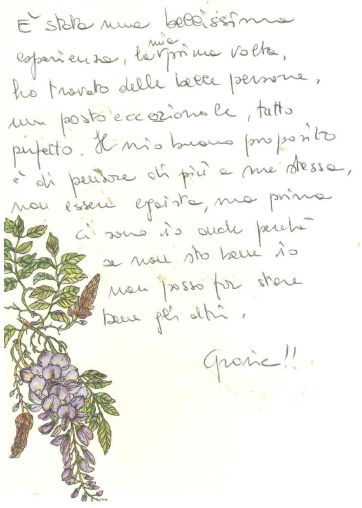 È stata una bellissima
esperienza, la mia prima volta,
ho trovato delle belle persone,
un posto eccezionale, tutto
perfetto. Il mio buono proposito
è di pensare di più a me stessa,
non essere egoista, ma prima
ci sono io anche perché
se non sto bene io
non posso far stare
bene gli altri.
Grazie!!